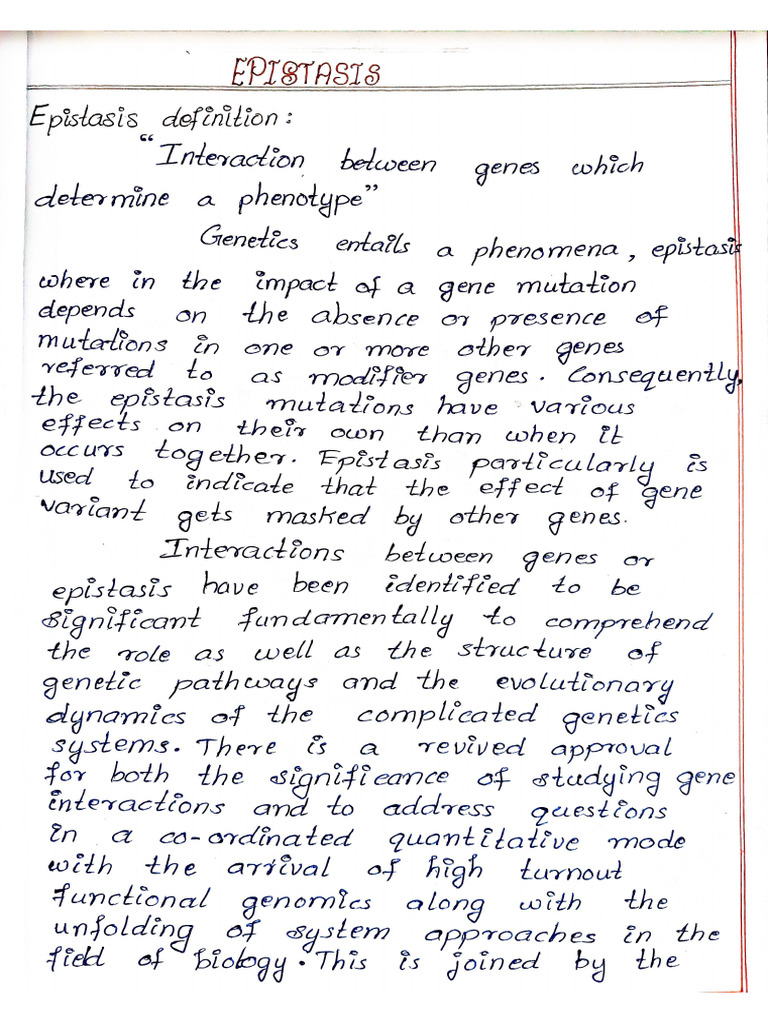 EPISTASIS
Epistasis definition:
"Interaction between genes which
determine a phenotype"
Genetics entails a phenomena, epistasis
where in the impact of a gene mutation
depends on the absence or presence of
mutations in one or more other genes
referred to as modifier genes. Consequently,
the epistasis mutations have various
effects on their own than when it
occurs together. Epistasis particularly is
used to indicate that the effect of gene
variant gets masked by other genes.
Interactions between genes or
epistasis have been identified to be
significant fundamentally to comprehend
the role as well as the structure of
genetic pathways and the evolutionary
dynamics of the complicated genetics
systems. There is a revived approval
for both the significance of studying gene
interactions and to address questions
in a co-ordinated quantitative mode
with the arrival of high turnout
functional genomics along with the
unfolding of system approaches in the
field of biology. This is joined by the